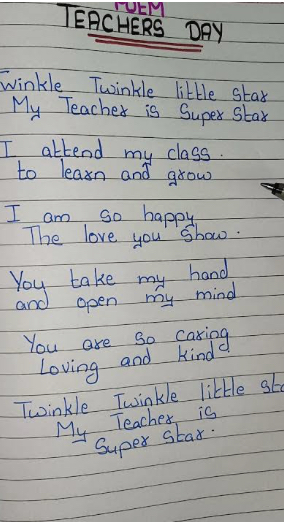 POEM
TEACHERS DAY
winkle Twinkle little star
My Teacher is Super Star
I attend my class.
to learn and grow
I am so happy
The love you show.
You take my hand
and open my mind
You are so caring
Loving and kind
Twinkle Twinkle little sta
My Teacher is
Super Star.